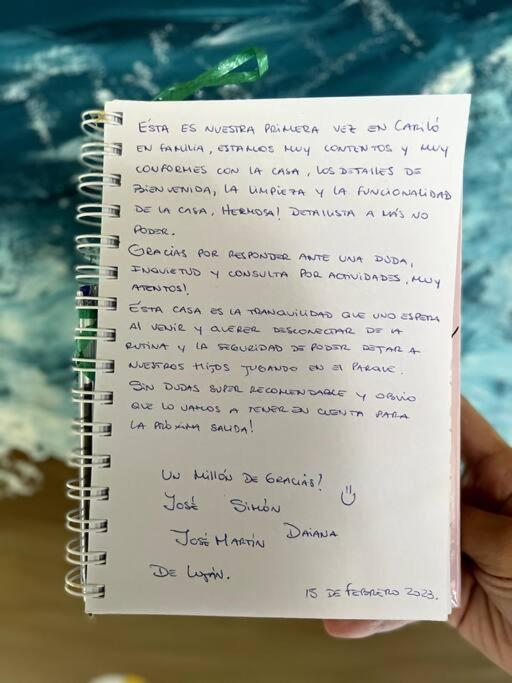 ÉSTA ES NUESTRA PRIMERA VEZ EN CARILÓ
EN FAMILIA, ESTAMOS MUY CONTENTOS Y MUY
CONFORMES CON LA CASA, LOS DETALLES DE
BIENVENIDA, LA LIMPIEZA Y LA FUNCIONALIDAD
DE LA CASA, HERMOSA! DETALLISTA A MÁS NO
PODER.
GRACIAS POR RESPONDER ANTE UNA DUDA,
INQUIETUD Y CONSULTA POR ACTIVIDADES, MUY
ATENTOS!
ÉSTA CASA ES LA TRANQUILIDAD QUE UNO ESPERA
AL VENIR Y QUERER DESCONECTAR DE LA
RUTINA Y LA SEGURIDAD DE PODER DEJAR A
NUESTROS HIJOS JUGANDO EN EL PARQUE.
SIN DUDAS SUPER RECOMENDABLE Y OBVIO
QUE LO VAMOS A TENER EN CUENTA PARA
LA PRÓXIMA SALIDA!
UN MILLÓN DE GRACIAS!
JOSÉ SIMÓN
JOSÉ MARTÍN DAIANA
DE LUJÁN.
15 DE FEBRERO 2023.